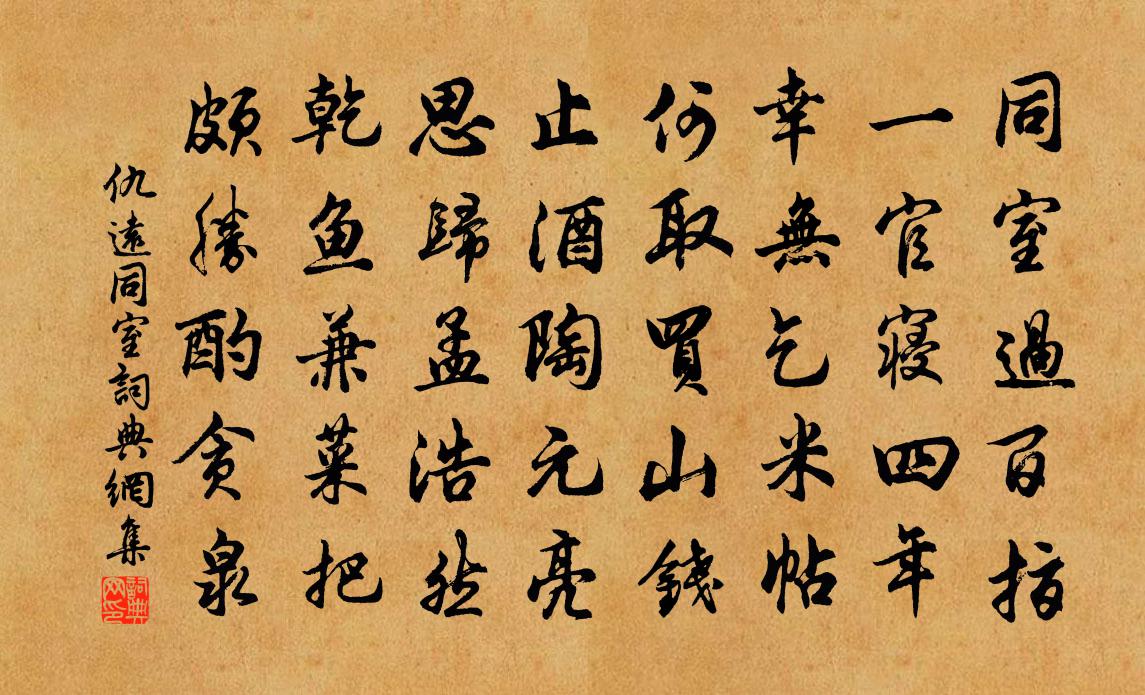 同室過百指
一官寢四年
幸無乞米帖
何取買山錢
止酒陶元亮
思歸孟浩然
乾魚兼菜把
頗勝酌貪泉
仇遠同室詞典網集
詞典网印